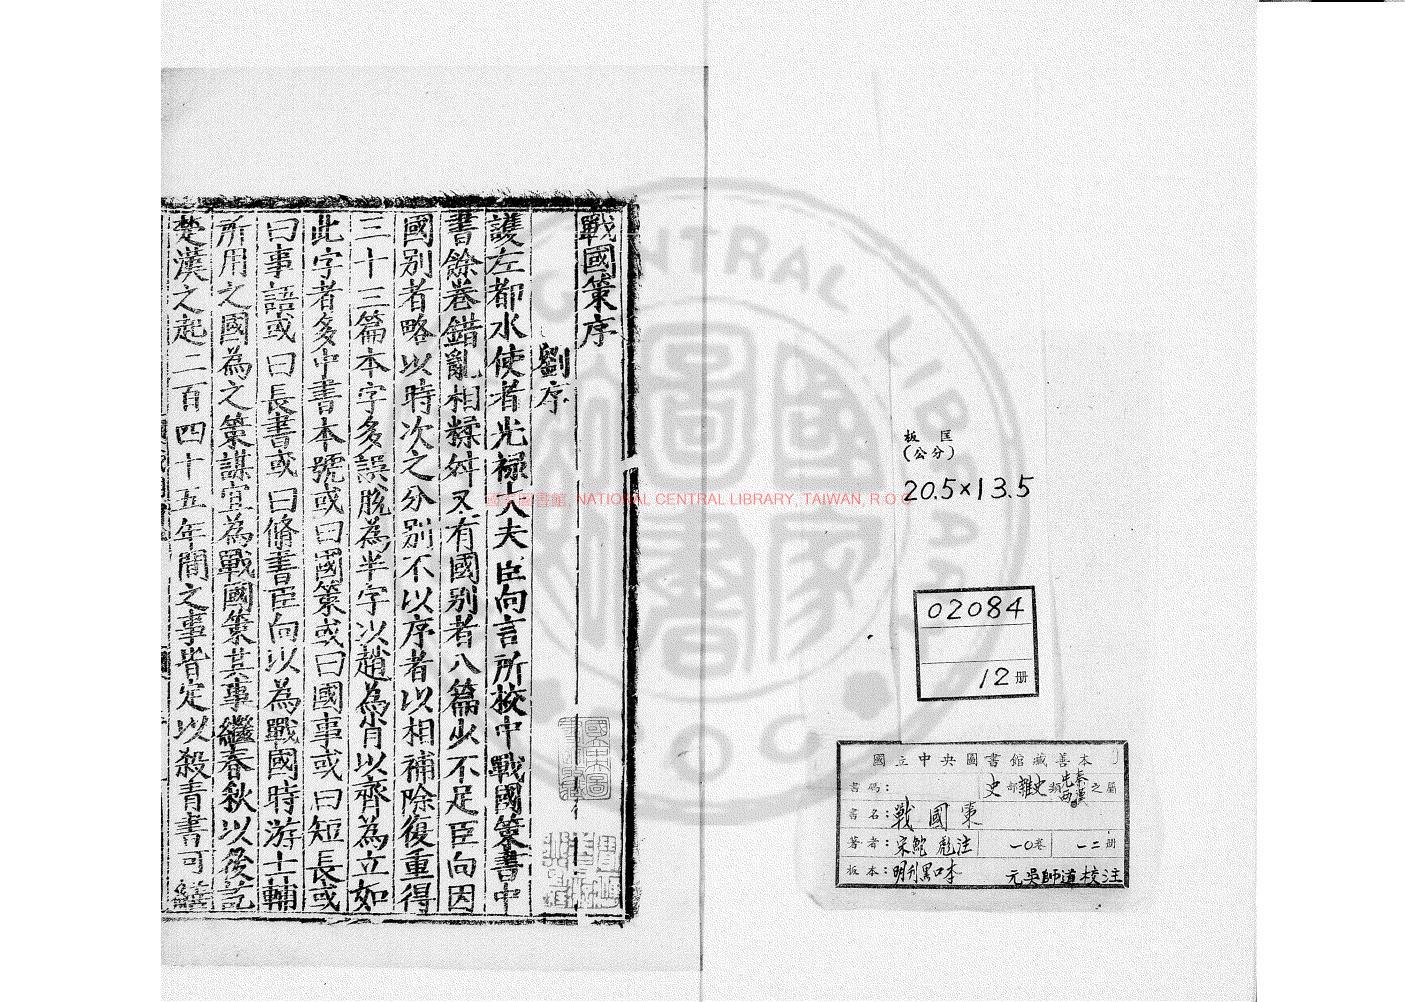 戰國策序
劉序
護左都水使者光祿大夫臣向言所校中戰國策書中
書餘卷錯亂相糅舛又有國别者八篇少不足臣向因
國别者略以時次之分别不以序者以相補除復重得
三十三篇本字多誤脫為半字以趙為肖以齊為立如
此字者多中書本號或曰國策或曰國事或曰短長或
曰事語或曰長書或曰脩書臣向以為戰國時游士輔
所用之國為之策謀宜為戰國策其事繼春秋以後訖
楚漢之起二百四十五年間之事皆定以殺青書可繕
國家圖書館, NATIONAL CENTRAL LIBRARY, TAIWAN, R.O.C
板匡
(公分)
20.5×13.5
02084
12册
國立中央圖書館藏善本
書碼: 史部雜史類先秦兩漢之屬
書名:戰國策
著者:宋鮑彪注 一〇卷 一二册
板本:明刊黑口本 元吳師道校注